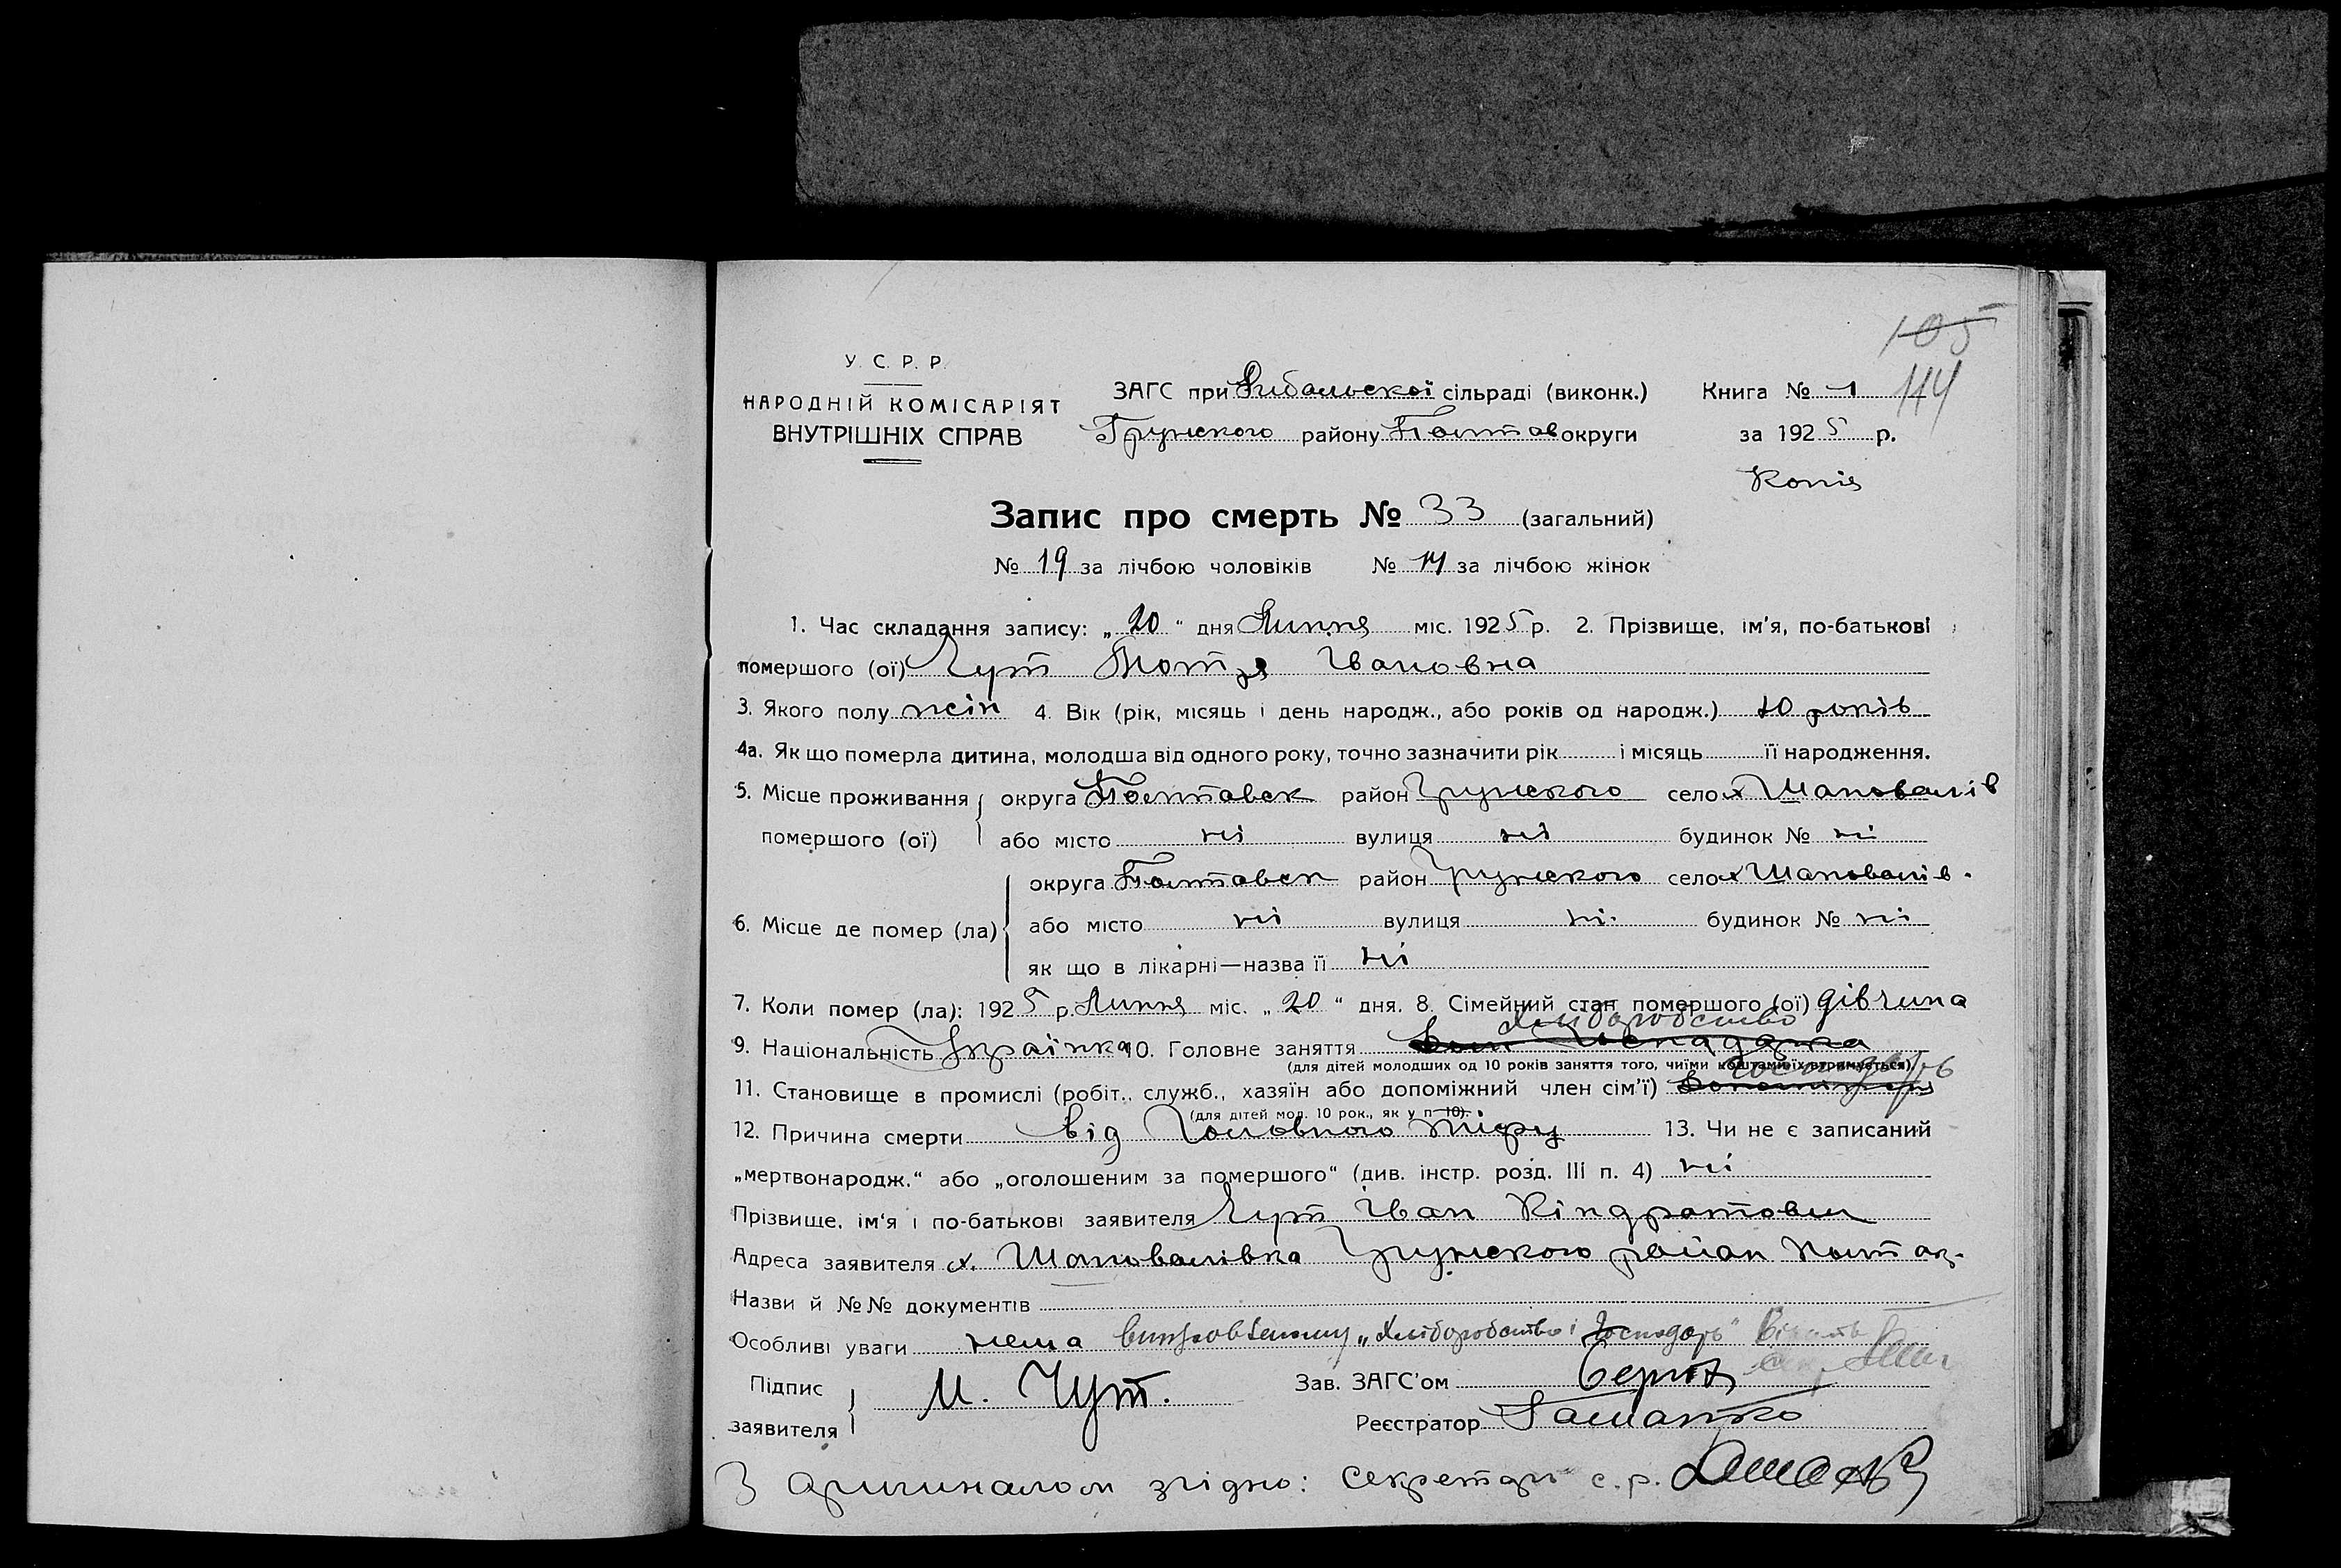 105
114
У. С. Р. Р.
НАРОДНІЙ КОМІСАРІЯТ
ВНУТРІШНІХ СПРАВ
ЗАГС при Рибальскої сільраді (виконк.)
Грунського району Полтав округи
Книга № 1
за 1925 р.
Копія
Запис про смерть № 33 (загальний)
№ 19 за лічбою чоловіків № 14 за лічбою жінок
1. Час складання запису: „20“ дня Липня міс. 1925 р. 2. Прізвище, ім'я, по-батькові
помершого (ої) Чут Мотря Івановна
3. Якого полу жін 4. Вік (рік, місяць і день народж., або років од народж.) 10 років
4а. Як що померла дитина, молодша від одного року, точно зазначити рік і місяць її народження.
5. Місце проживання помершого (ої) округа Полтавск район Грунського село х Шаповалів
або місто ні вулиця ні будинок № ні
6. Місце де помер (ла) округа Полтавск район Грунського село х Шаповалів.
або місто ні вулиця ні будинок № ні
як що в лікарні—назва її ні
7. Коли помер (ла): 1925 р. Липня міс. „20“ дня. 8. Сімейний стан помершого (ої) дівчина
Хліборобство
9. Національність Українка 10. Головне заняття
(для дітей молодших од 10 років заняття того, чиїми коштами їх втримується).
11. Становище в промислі (робіт., служб., хазяїн або допоміжний член сім'ї)
(для дітей мол. 10 рок., як у п 10).
12. Причина смерти від Головного тифу 13. Чи не є записаний
„мертвонародж.“ або „оголошеним за помершого“ (див. інстр. розд. III п. 4) ні
Прізвище, ім'я і по-батькові заявителя Чут Іван Кіндратович
Адреса заявителя х. Шаповалівка Грунського район Полтав.
Назви й №№ документів
Особливі уваги нема „Хліборобство і Господарь“
Підпис заявителя И. Чут. Зав. ЗАГС'ом
Реєстратор
З оригиналом згідно: Секретарь с.р.